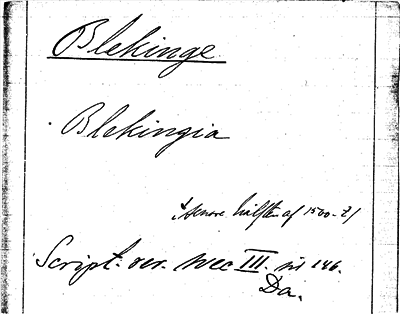 Blekinge
Blekingia
senare hälften af 1500-t/
Script. rer. svec III. s. 146.
Da.